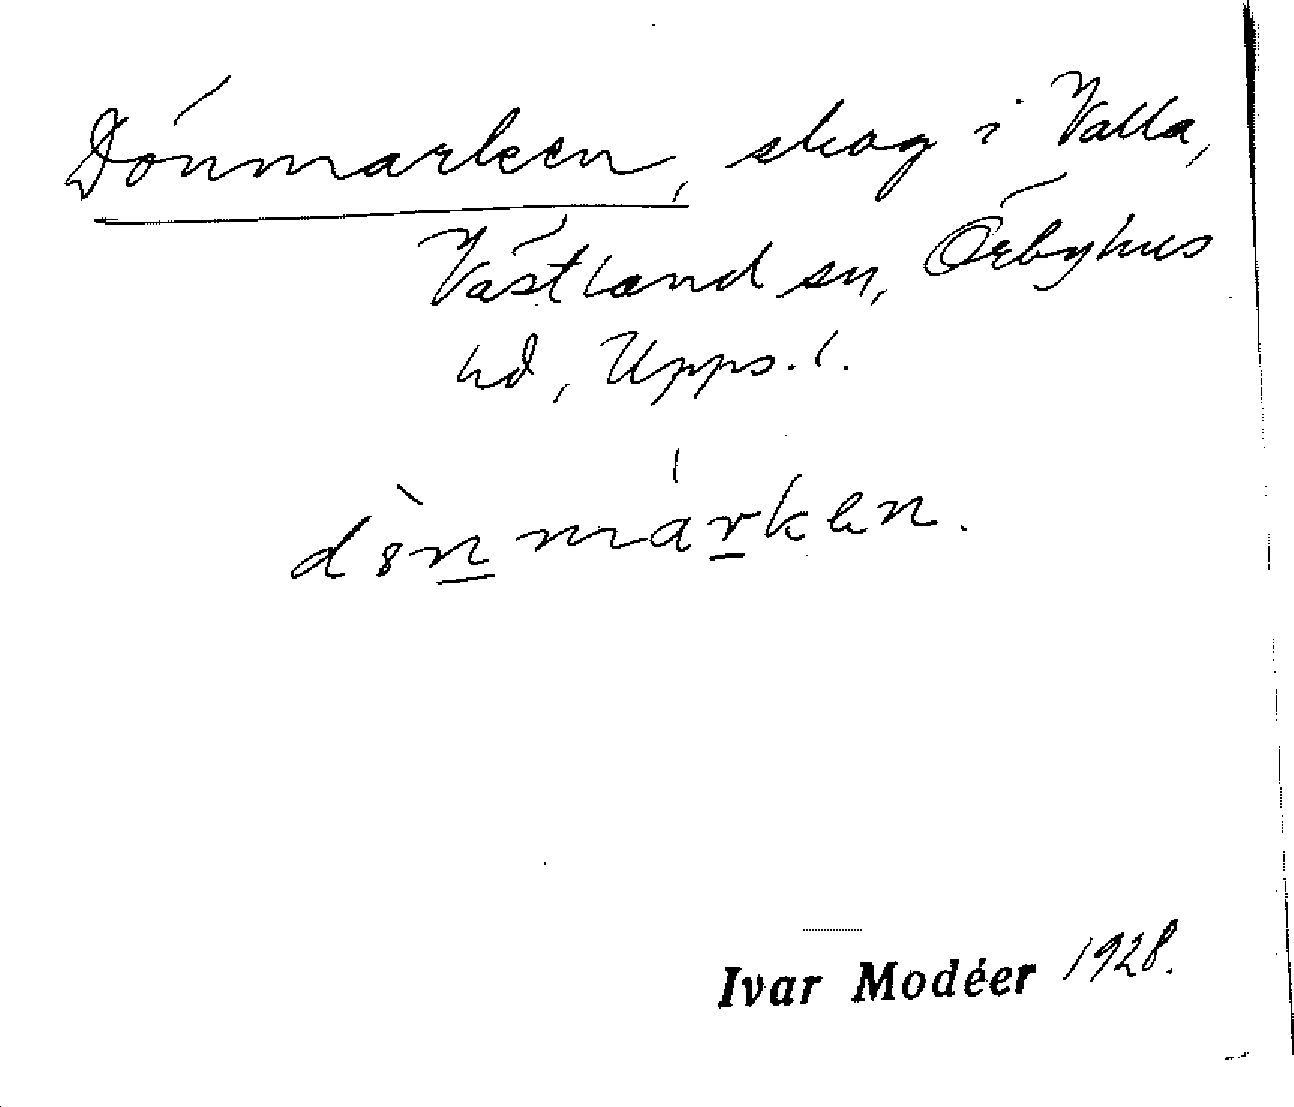 Dönmarken, skog i Valla,
Västland sn, Örbyhus
hd, Upps. l.
dö̀nmárken.
Ivar Modéer 1928.